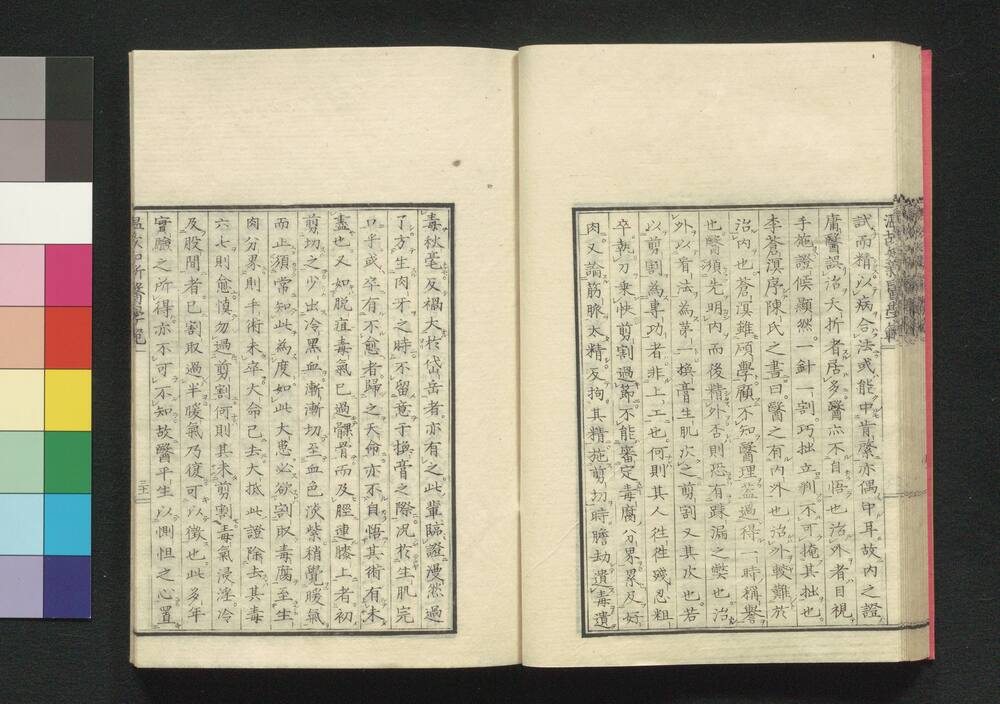 試而精以病合法或能中肯綮亦偶中耳故内之證
庸醫誤治夭折者居多醫亦不自悟也治外者目視
手施證候顯然一針一割巧拙立判不可掩其拙也
李蒼溟序陳氏之書曰醫之有内外也治外較難於
治内也蒼溟雖碩學顧不知醫理蓋過得一時稱譽
也醫須先明内而後精外否則恐有疎漏之弊也治
外以膏法為第一換膏生肌次之剪割又其次也若
以剪割為專功者非上工也何則其人徃徃殘忍粗
卒執刀乘快剪割過節不能審定毒腐分界累及好
肉又論筋脉太精反拘其精施剪切時膽劫遺毒遺
毒秋毫及禍大於岱岳者亦有之此輩臨證漫然過
了方生肉牙之時不留意于換膏之際况於生肌完
口乎或卒有不愈者歸之天命亦不自悟其術有未
盡也又如脱疽毒氣已過髁骨而及脛連膝上者初
剪切之少出冷黒血漸漸切至血色淡紫稍覺暖氣
而止須常知此為度如此大患必欲割取毒腐至生
肉分界則手術未卒大命已去大抵此證除去其毒
六七則愈慎勿過剪割何則其未剪割毒氣浸淫冷
及股間者已割取過半暖氣乃復可以徴也此多年
實驗之所得亦不可不知故醫平生以惻怛之心置